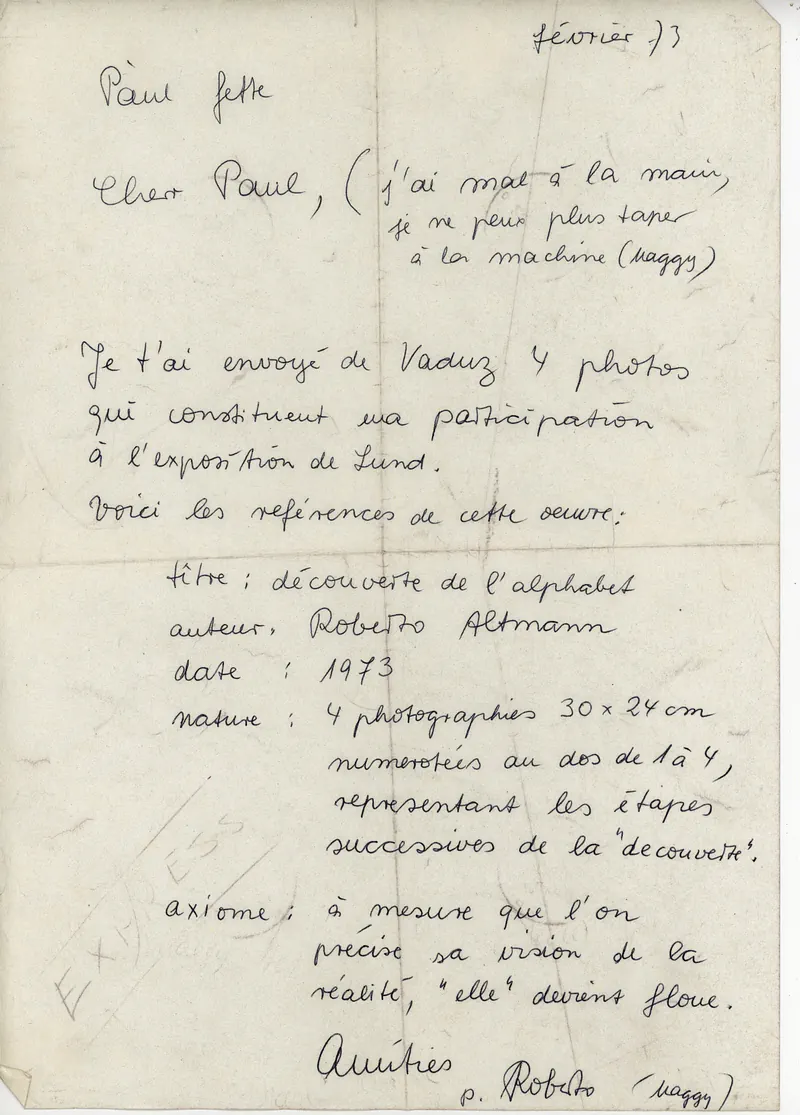 février 73
Paul fette
Cher Paul, (j'ai mal à la main,
je ne peux plus taper
à la machine (Maggy)
Je t'ai envoyé de Vaduz 4 photos
qui constituent ma participation
à l'exposition de Lund.
Voici les références de cette oeuvre:
titre : découverte de l'alphabet
auteur. Roberto Altmann
date : 1973
nature : 4 photographies 30 x 24 cm
numerotées au dos de 1 à 4,
representant les étapes
successives de la "decouverte".
axiome : à mesure que l'on
précise sa vision de la
réalité, "elle" devient floue.
EXPRESS
Amitiés
p. Roberto (Maggy)